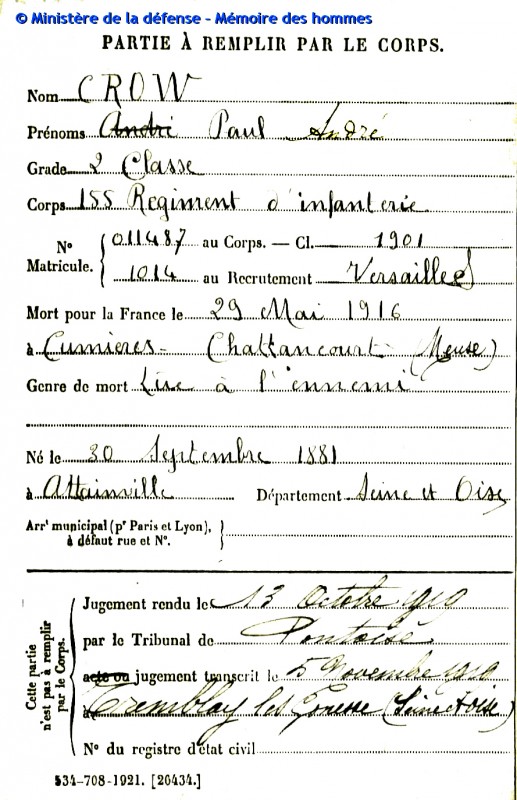 © Ministère de la défense - Mémoire des hommes
PARTIE À REMPLIR PAR LE CORPS.
Nom CROW
Prénoms André Paul André
Grade 2 Classe
Corps 155 Regiment d'infanterie
N° Matricule. 011487 au Corps. — Cl. 1901
1014 au Recrutement Versailles
Mort pour la France le 29 Mai 1916
à Cumieres - Chattancourt (Meuse)
Genre de mort Tué à l'ennemi
Né le 30 Septembre 1881
à Attainville Département Seine et Oise
Arrt municipal (pr Paris et Lyon),
à défaut rue et N°.
Cette partie n'est pas à remplir par le Corps.
Jugement rendu le 13 Octobre 1919
par le Tribunal de Pontoise
acte ou jugement transcrit le 5 Novembre 1919
à Tremblay les Gonesse (Seine et Oise)
N° du registre d'état civil
534-708-1921. [26434.]